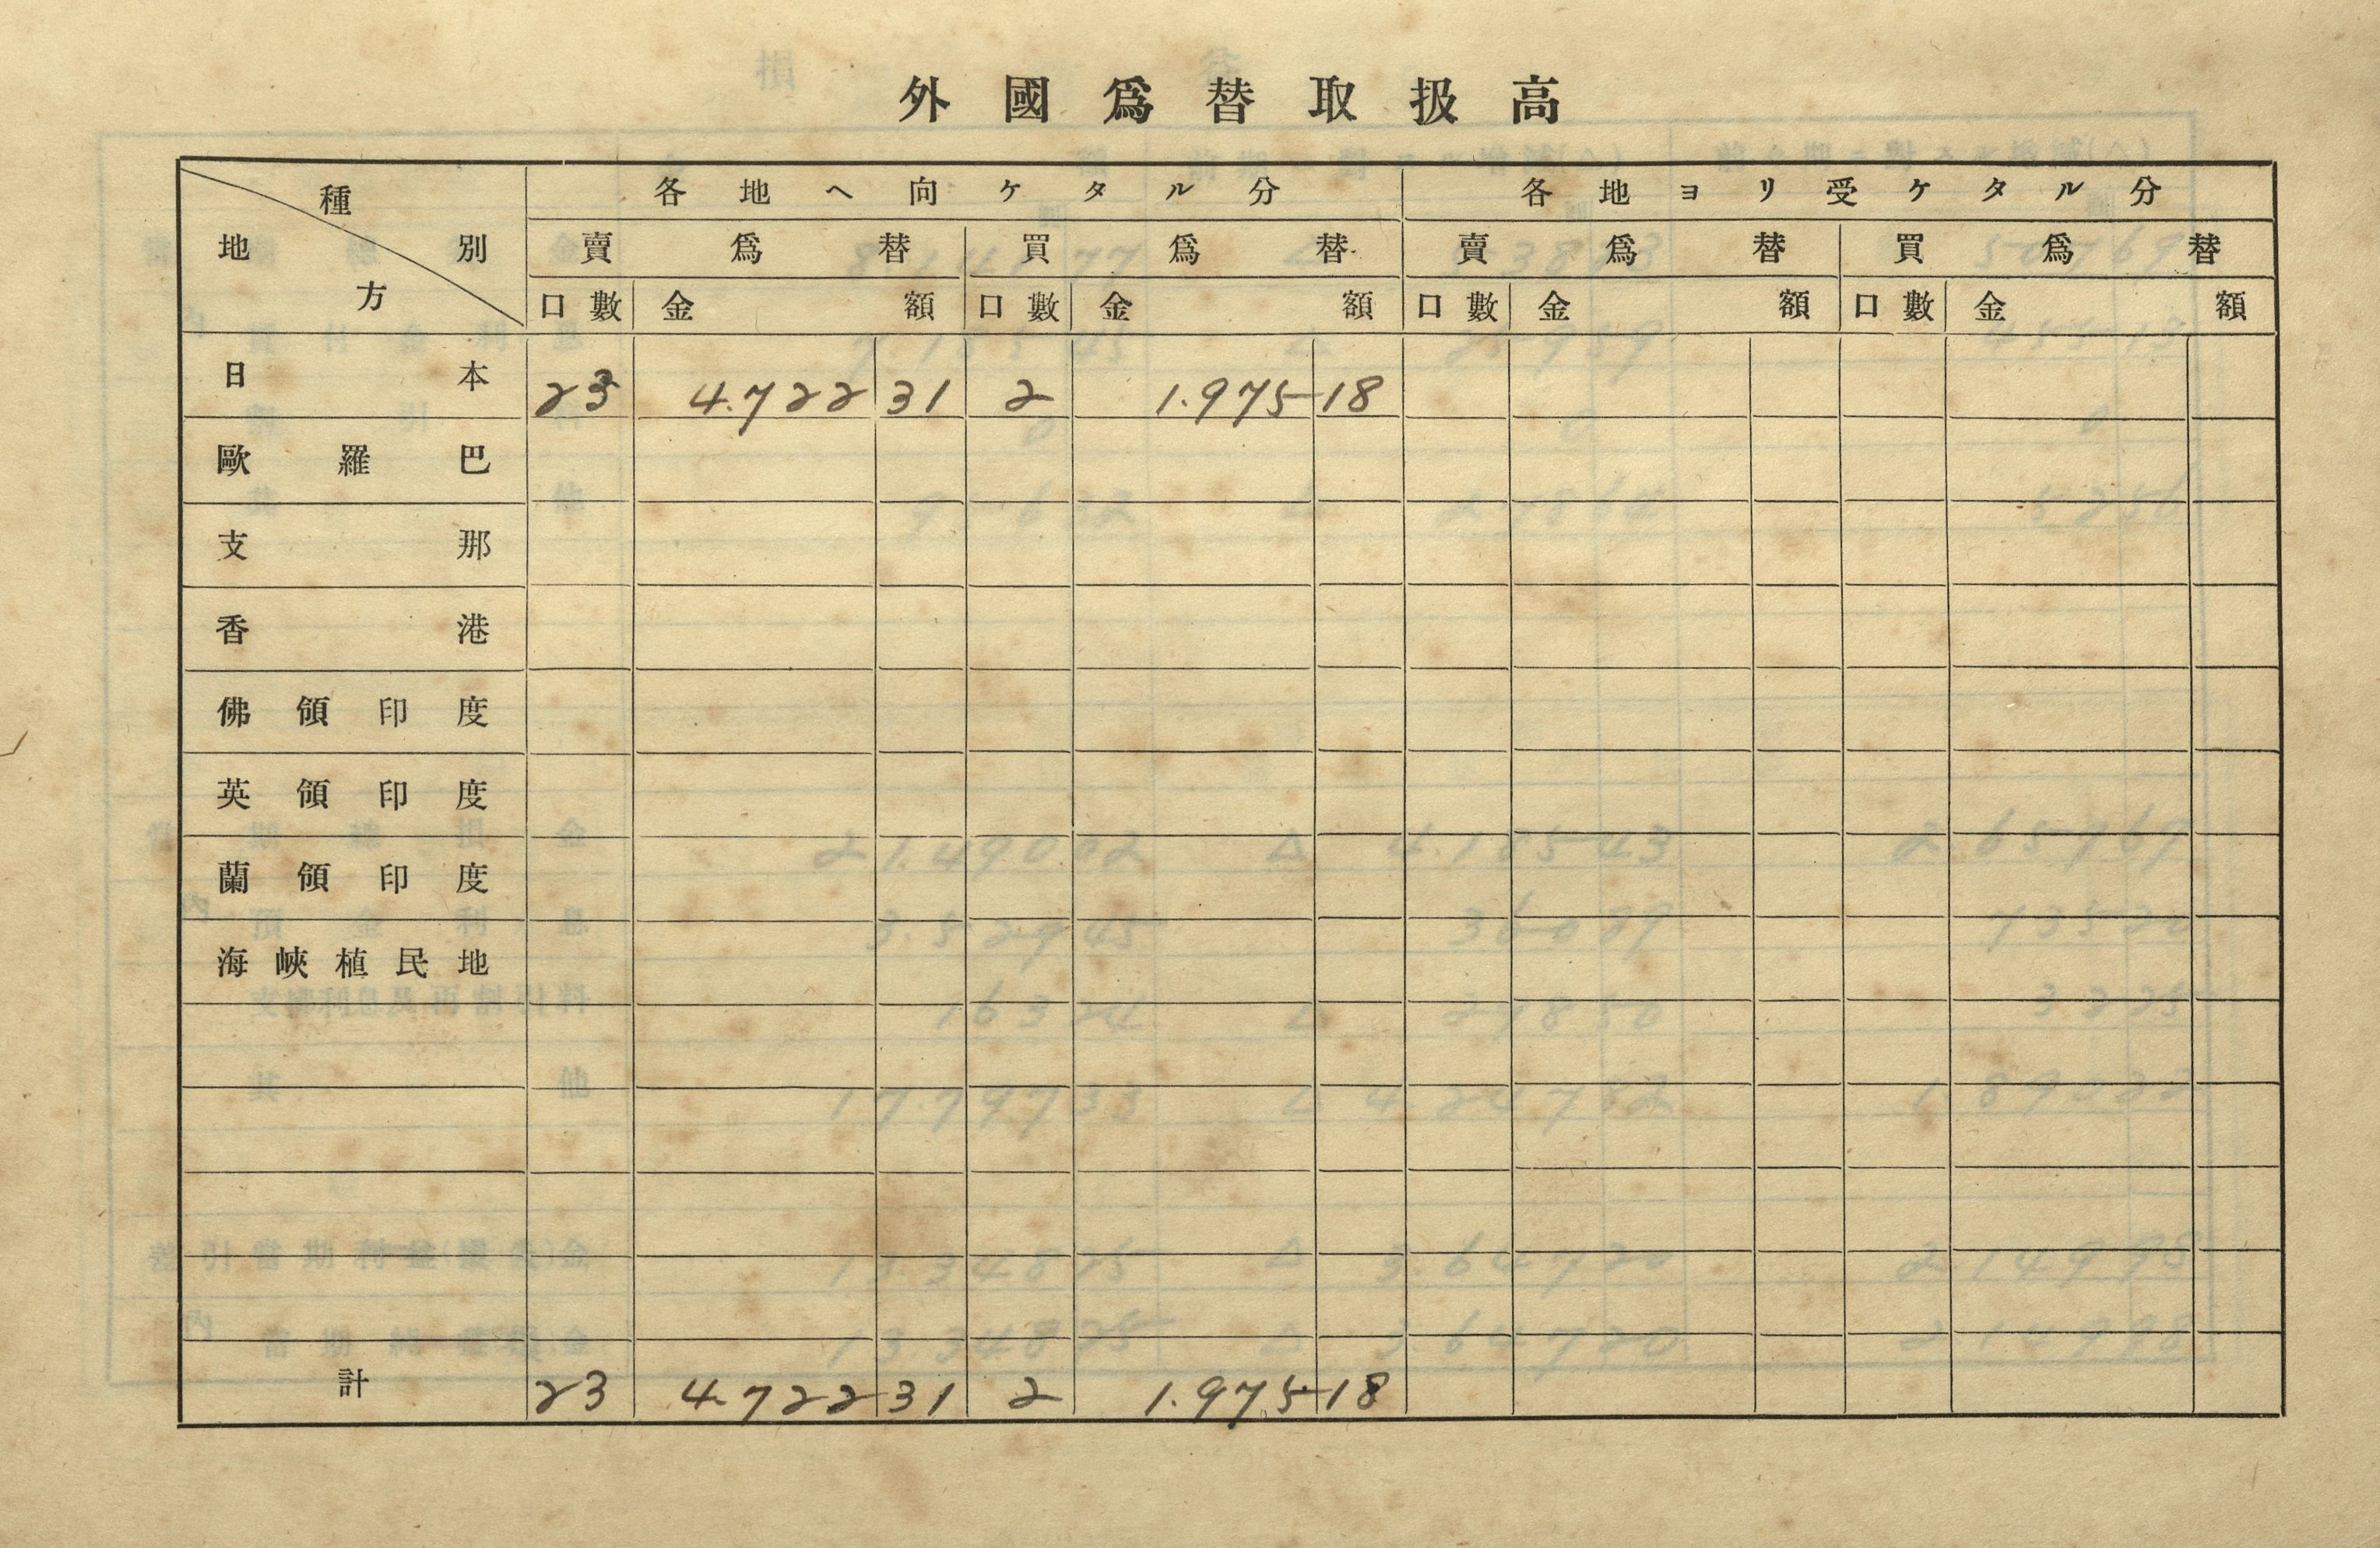 外國爲替取扱高
種別 地方 各地ヘ向ケタル分 各地ヨリ受ケタル分
賣爲替 買爲替 賣爲替 買爲替
口數 金額 口數 金額 口數 金額 口數 金額
日本 23 4.722 31 2 1.975 18
歐羅巴
支那
香港
佛領印度
英領印度
蘭領印度
海峽植民地
計 23 4.722 31 2 1.975 18